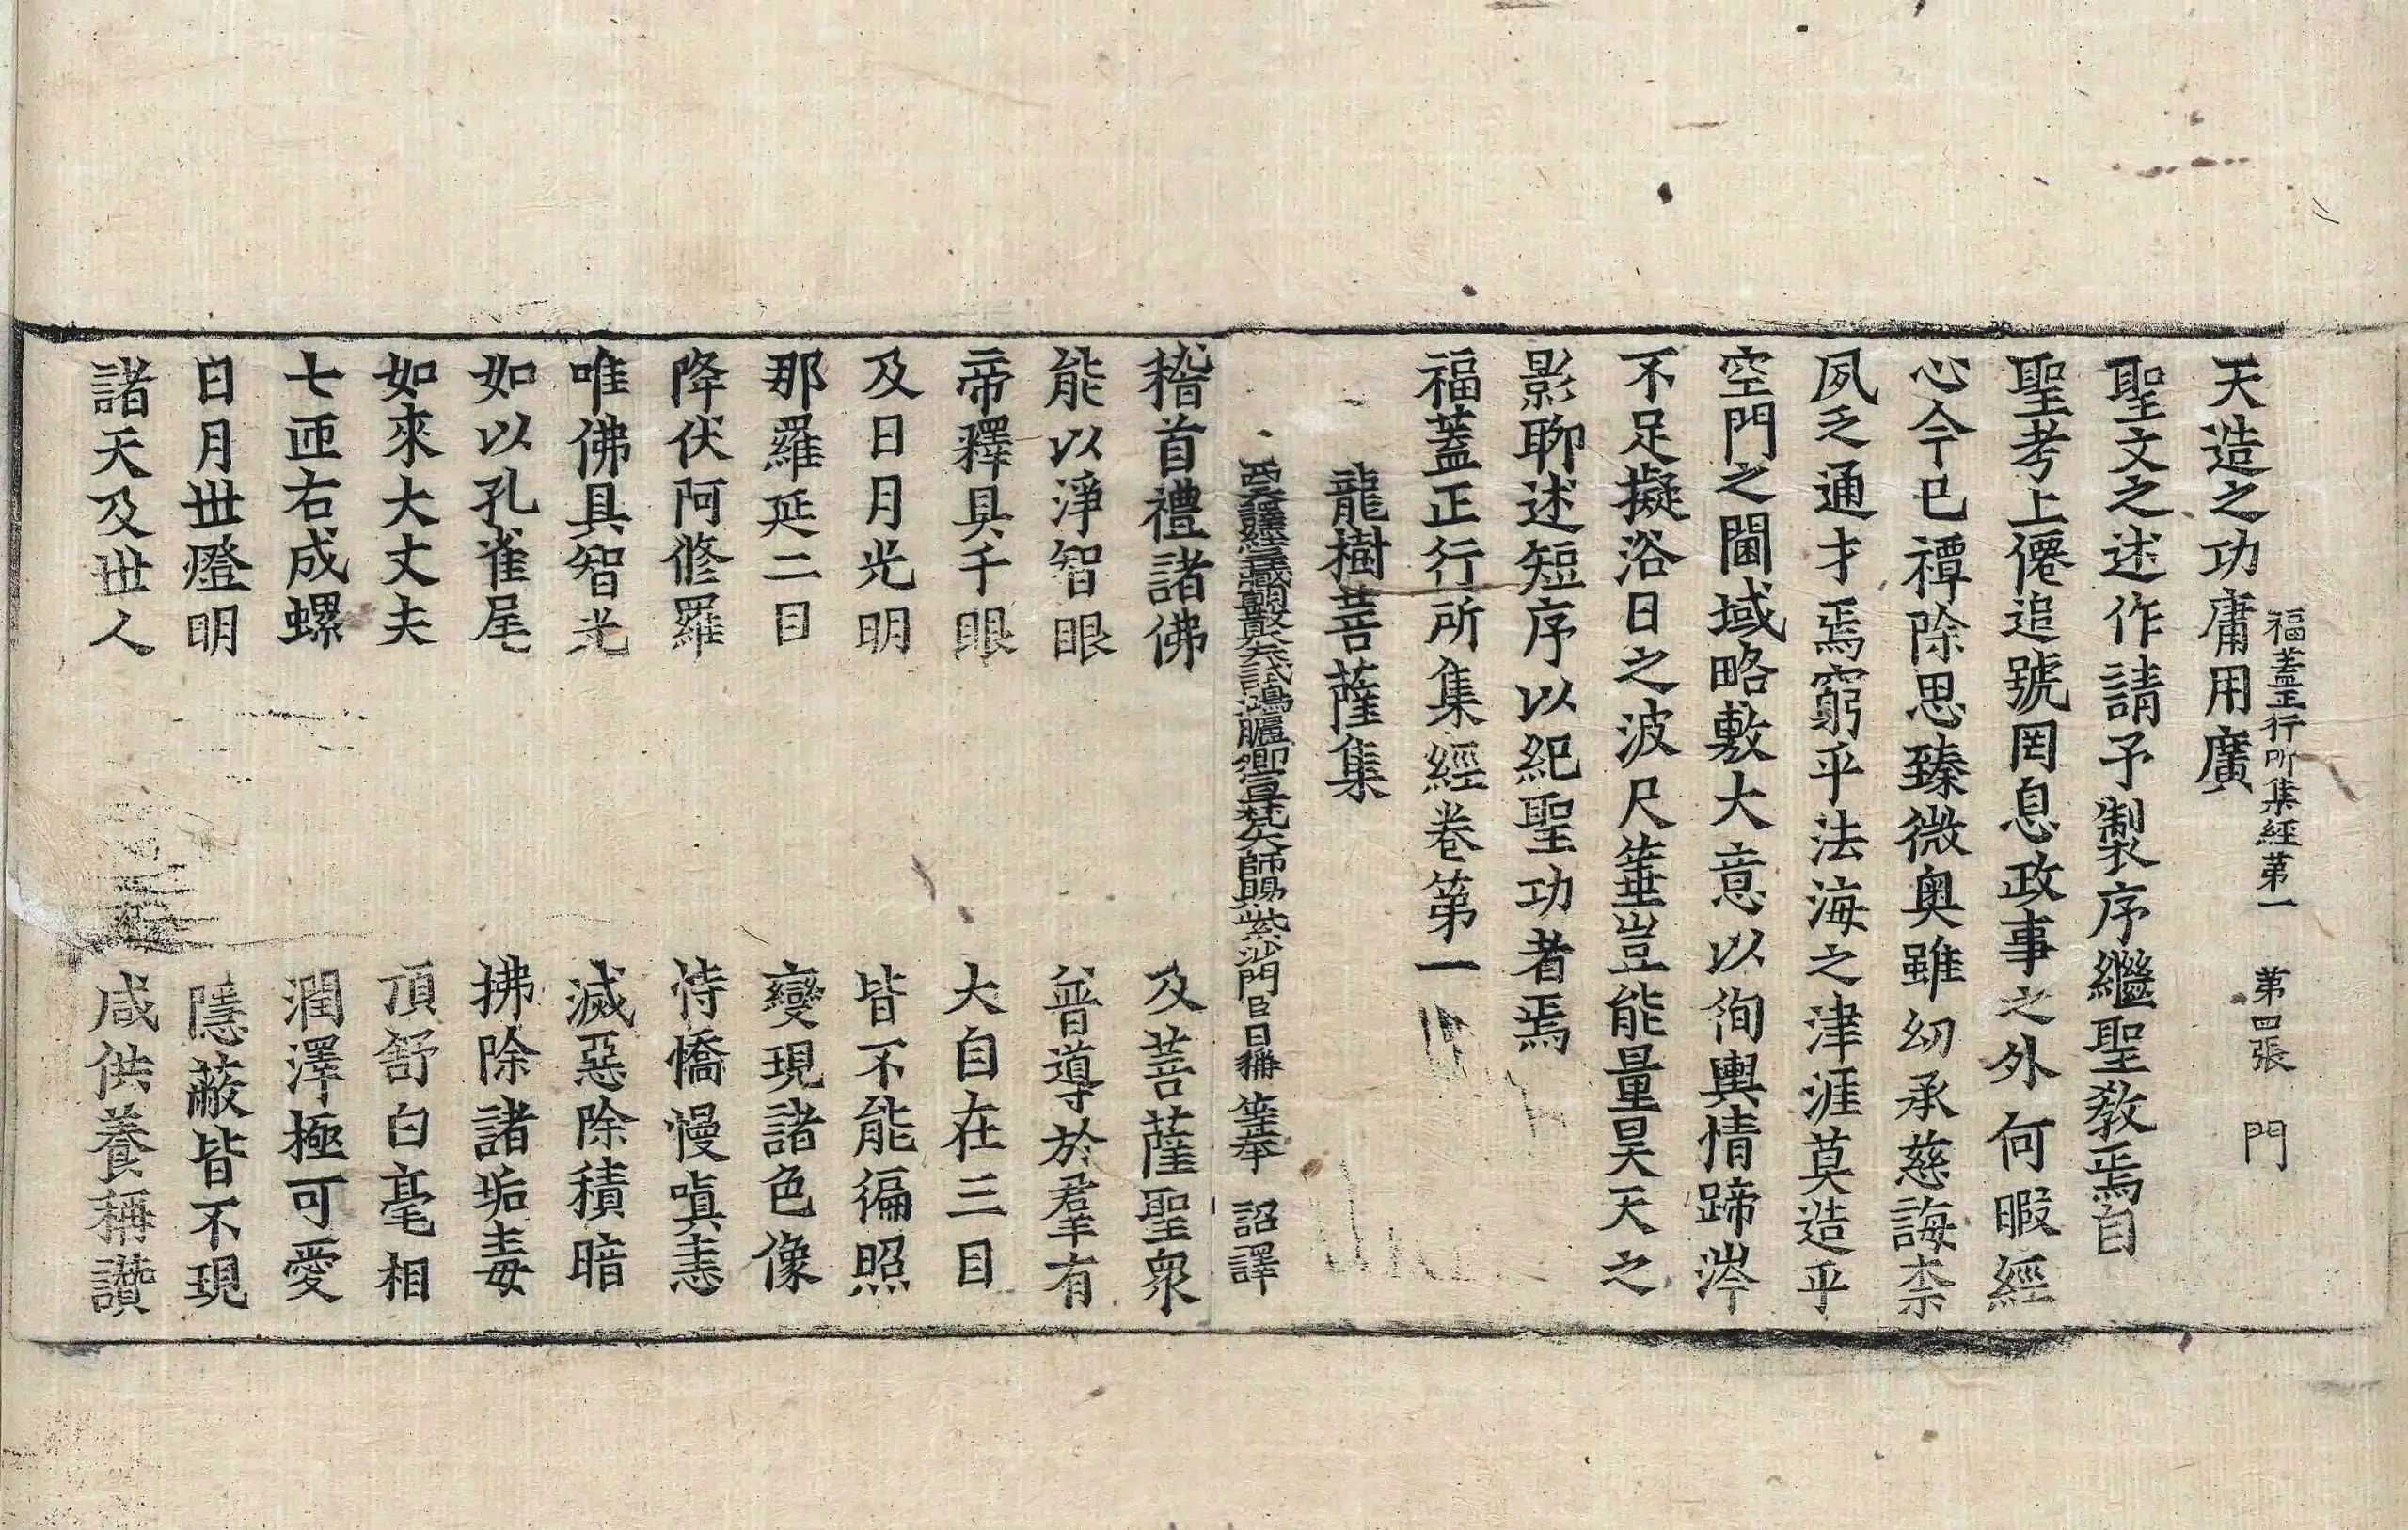 福蓋正行所集經第一 第四張 門
天造之功庸用廣
聖文之述作請予製序繼聖教焉自
聖考上僊追號罔息政事之外何暇經
心今已禫除思臻微奧雖幼承慈誨柰
夙乏通才焉窮乎法海之津涯莫造乎
空門之閫域略敷大意以徇輿情蹄涔
不足擬浴日之波尺箠豈能量昊天之
影聊述短序以紀聖功者焉
福蓋正行所集經卷第一
龍樹菩薩集
西天譯經三藏朝散大夫試鴻臚卿宣梵大師賜紫沙門臣日稱等奉 詔譯
稽首禮諸佛 及菩薩聖衆
能以淨智眼 普導於羣有
帝釋具千眼 大自在三目
及日月光明 皆不能徧照
那羅延二目 變現諸色像
降伏阿修羅 恃憍慢嗔恚
唯佛具智光 滅惡除積暗
如以孔雀尾 拂除諸垢毒
如來大丈夫 頂舒白毫相
七匝右成螺 潤澤極可愛
日月世燈明 隱蔽皆不現
諸天及世人 咸供養稱讚